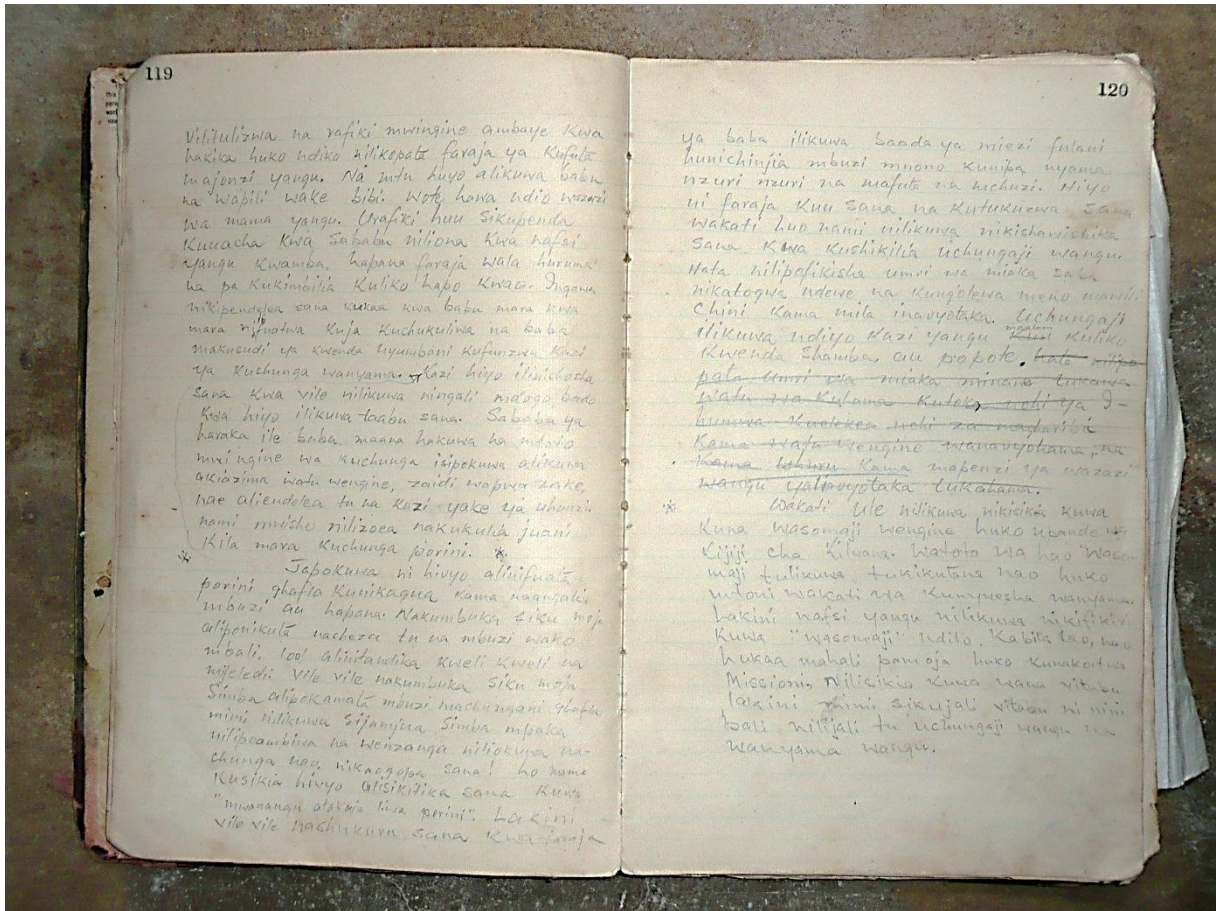 119
Vilitulizwa na rafiki mwingine ambaye kwa
hakika huko ndiko nilikopata faraja ya kufuta
majonzi yangu. Na mtu huyo alikuwa babu
na wapili wake bibi. Wote hawa ndio wazazi
wa mama yangu. Urafiki huu sikupenda
kuuacha kwa sababu niliona kwa nafsi
yangu kwamba, hapana faraja wala huruma
na pa kukimbilia kuliko hapo kwao. Ingawa
nikipendelea sana kukaa kwa babu mara kwa
mara kuja kuchukuliwa na baba
makusudi ya kwenda nyumbani kufunzwa kazi
ya kuchunga wanyama. Kazi hiyo ilinichosha
sana kwa vile nilikuwa ningali mdogo bado
kwa hiyo ilikuwa taabu sana. Sababu ya
haraka ile baba, maana hakuwa na mtoto
mwingine wa kuchunga isipokuwa alikuwa
akiazima watu wengine, zaidi wapwa zake,
nae aliendelea tu na kazi yake ya uhunzi.
nami mwisho nilizoea nakukulia juani
kila mara kuchunga porini. *
Japokuwa ni hivyo alinifuata
porini ghafla kunikagua kama naangalia
mbuzi au hapana. Nakumbuka siku moja
aliponikuta nacheza tu na mbuzi wako
mbali, loo! alinitandika kweli kweli na
mjeledi. Vile vile nakumbuka siku moja
Simba alipokamata mbuzi machungani ghafla
mimi nilikuwa sijamjua Simba mpaka
nilipoambiwa na wenzangu niliokuwa na-
chunga nao, nikaogopa sana! ho mama
kusikia hivyo alisikitika sana kuwa
"mwanangu atakuja liwa porini". Lakini
vile vile nashukuru sana kwa faraja
120
ya baba ilikuwa baada ya miezi fulani
hunichinjia mbuzi mnono kunipa nyama
nzuri nzuri na mafuta na mchuzi. Hiyo
ni faraja kuu sana na kutukuzwa sana
wakati huo namii nilikuwa nikishawishika
sana kwa kushikilia uchungaji wangu.
Hata nilipofikisha umri wa miaka saba
nikatogwa ndewe na kung'olewa meno mawili
chini kama mila inavyotaka. Uchungaji
ilikuwa ndiyo kazi yangu kuliko
kwenda shamba au popote. hata nilipo
pata umri wa miaka minane tukawa
watu wa kuhama kutoka nchi ya I-
kuelekea nchi za magharibi
kama watu wengine wanavyohama, na
kama kama mapenzi ya wazazi
wangu yalivyotaka tukahama.
* Wakati ule nilikuwa nikisikia kuwa
kuna wasomaji wengine huko upande wa
kijiji cha Kilyana. Watoto wa hao waso-
maji tulikuwa tukikutana nao huko
mtoni wakati wa kunywesha wanyama.
Lakini nafsi yangu nilikuwa nikifikiri
kuwa "wasomaji" ndilo kabila lao, nao
hukaa mahali pamoja huko kunakoitwa
Missioni. Nilisikia kuwa wana vitabu
lakini mimi sikujali vitabu ni nini
bali nilijali tu uchungaji wangu na
wanyama wangu.